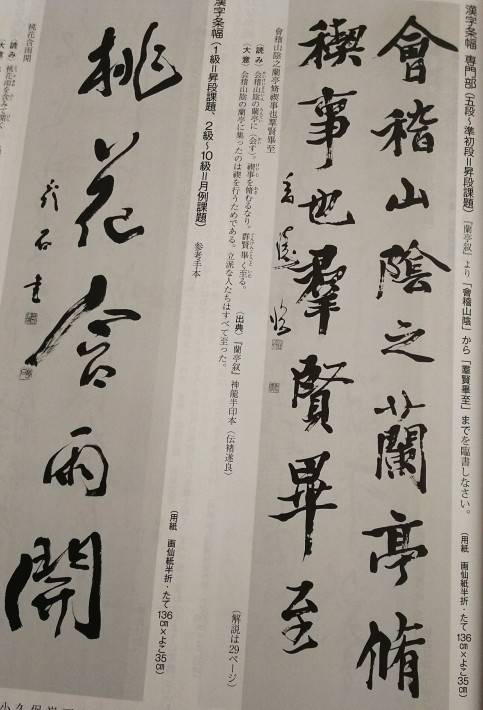 漢字条幅 専門部(五段~準初段=昇段課題)『蘭亭叙』より「會稽山陰」から「羣賢畢至」までを臨書しなさい。
(用紙 画仙紙半折・たて136㎝×よこ35㎝)
會稽山陰之蘭亭脩
禊事也羣賢畢至
會稽山陰之蘭亭脩禊事也羣賢畢至
〈読み〉会稽山陰の蘭亭に(会す)。禊事を脩むるなり。群賢畢く至る。
〈大意〉会稽山陰の蘭亭に集ったのは禊を行うためである。立派な人たちはすべて至った。
〈出典〉『蘭亭叙』神龍半印本(伝褚遂良)
(解説は29ページ)
漢字条幅(1級=昇段課題、2級~10級=月例課題)
参考手本
(用紙 画仙紙半折・たて136㎝×よこ35㎝)
桃花含雨開
桃花含雨開
〈読み〉
〈大意〉